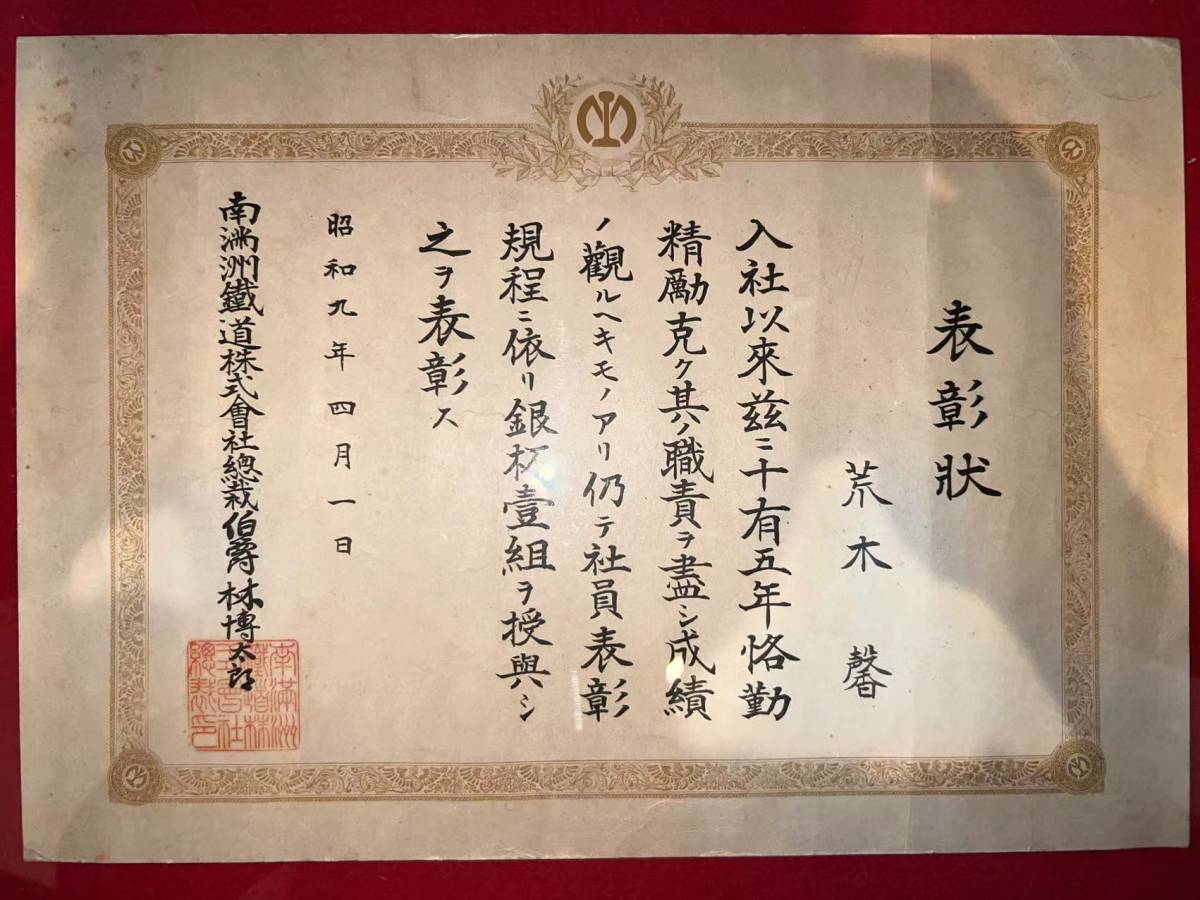 表彰狀
荒木馨
入社以來茲ニ十有五年恪勤
精勵克ク其ノ職責ヲ盡シ成績
ノ觀ルヘキモノアリ仍テ社員表彰
規程ニ依リ銀杯壹組ヲ授與シ
之ヲ表彰ス
昭和九年四月一日
南滿洲鐵道株式會社總裁伯爵林博太郎
南滿洲
鐵道株
式會社
總裁印